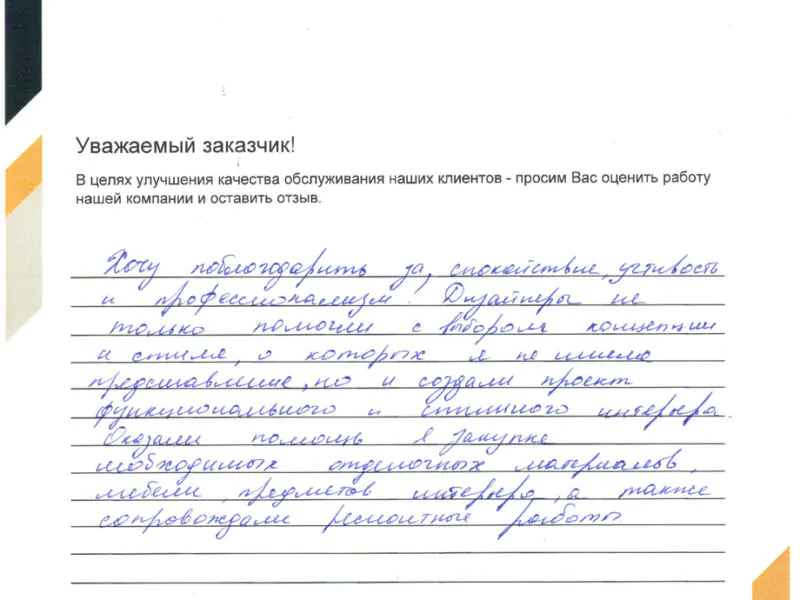 Уважаемый заказчик!
В целях улучшения качества обслуживания наших клиентов - просим Вас оценить работу
нашей компании и оставить отзыв.
Хочу поблогодарить за, спокойствие, учтивость
и профессионализм! Дизайнеры не
только помогли с выбором концепции
и стиля, о которых я не имела
представление, но и создали проект
функционального и стильного интерьера
Оказали помощь в закупке
необходимых отделочных материалов,
мебели, предметов интерьера, а также
сопровождали ремонтные работы